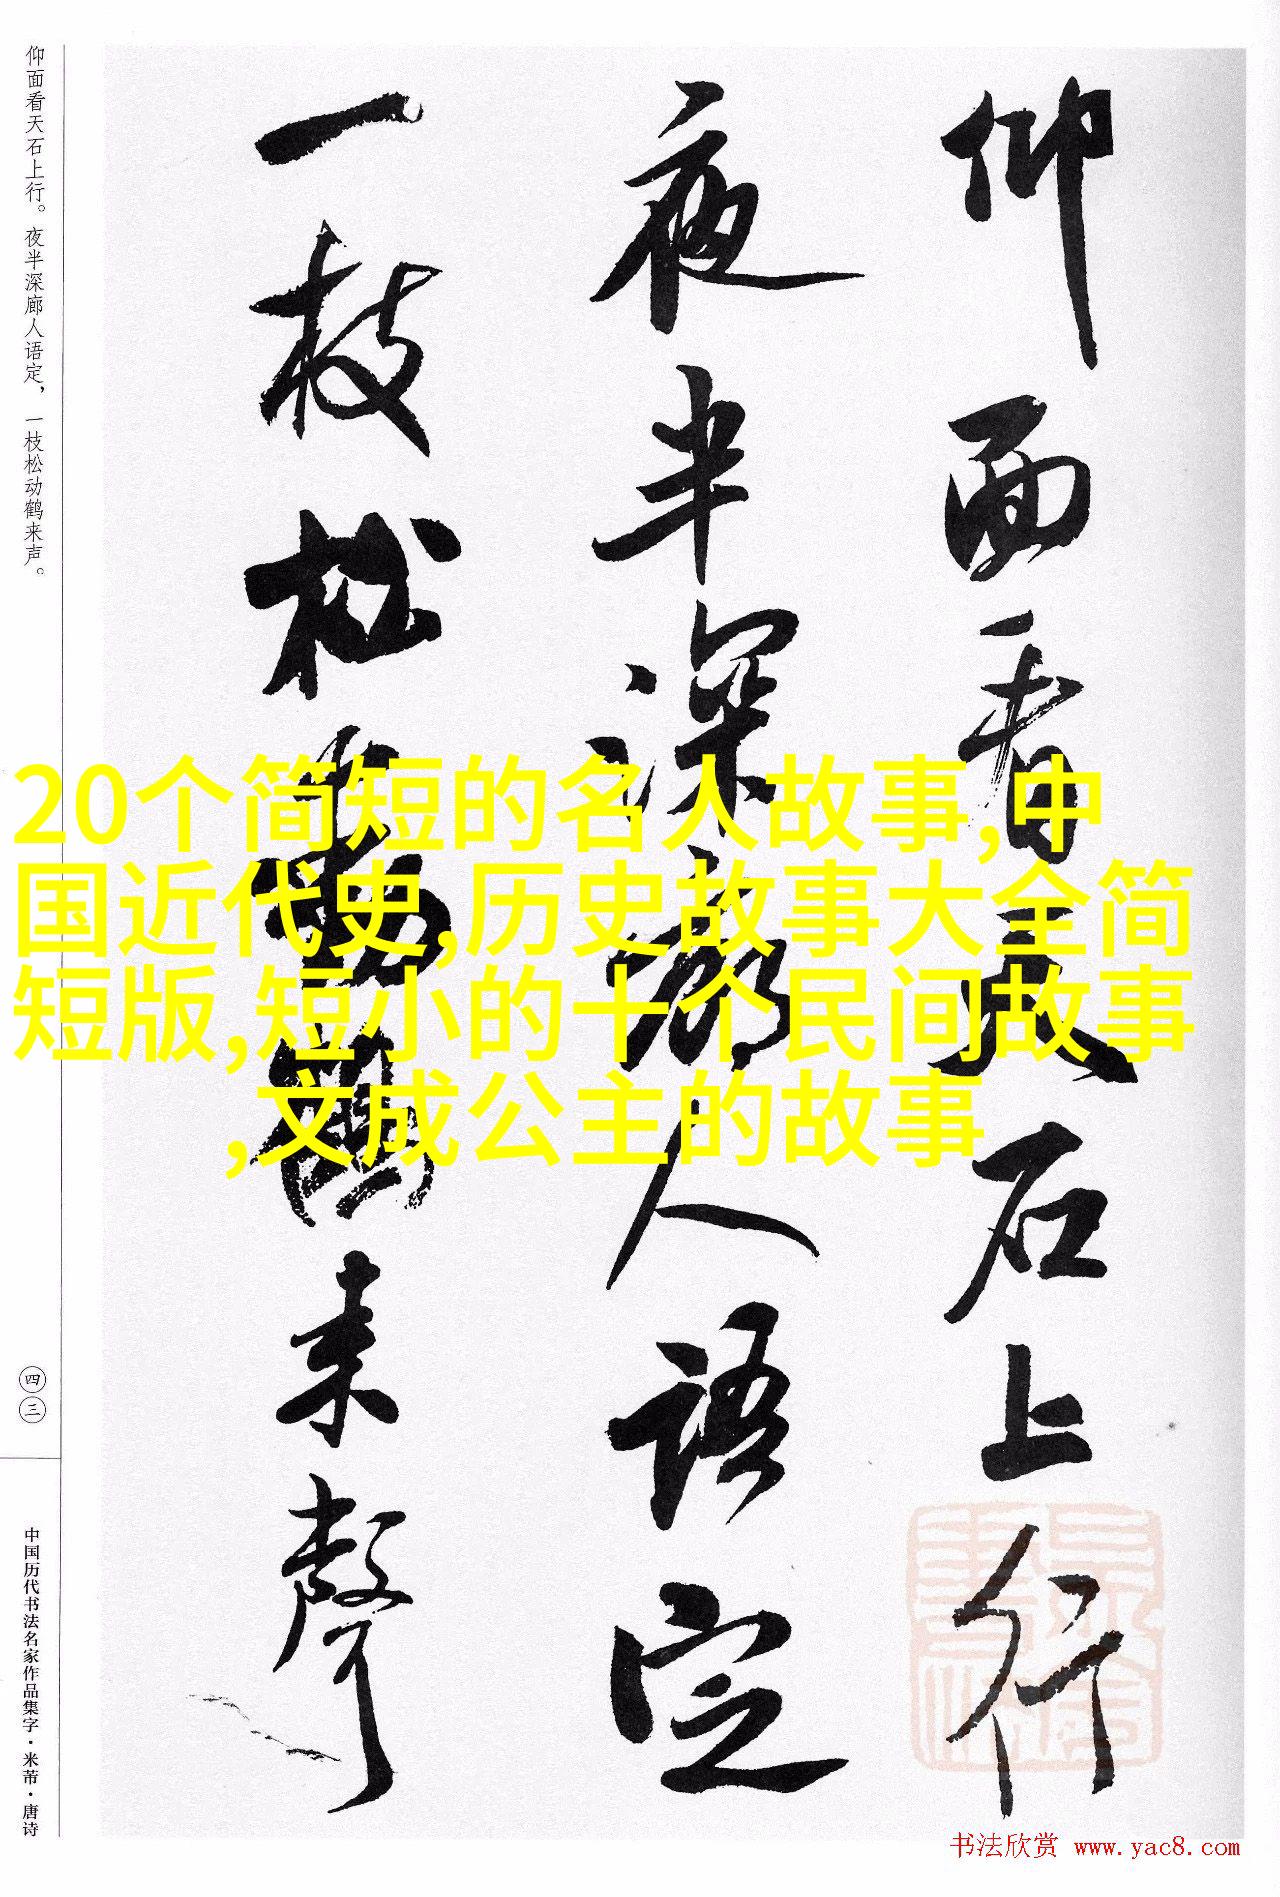 仰面看天石上行
夜半深廊人语定
一枝松動鹤来聲
仰面看天石上行。夜半深廊人语定，一枝松动鹤来声。
四三
中国历代书法名家作品集字·米芾·唐诗
20个简短的名人故事,中
国近代史,历史故事大全简
短版,短小的十个民间故事
,文成公主的故事
书法欣赏 www.yac8.com